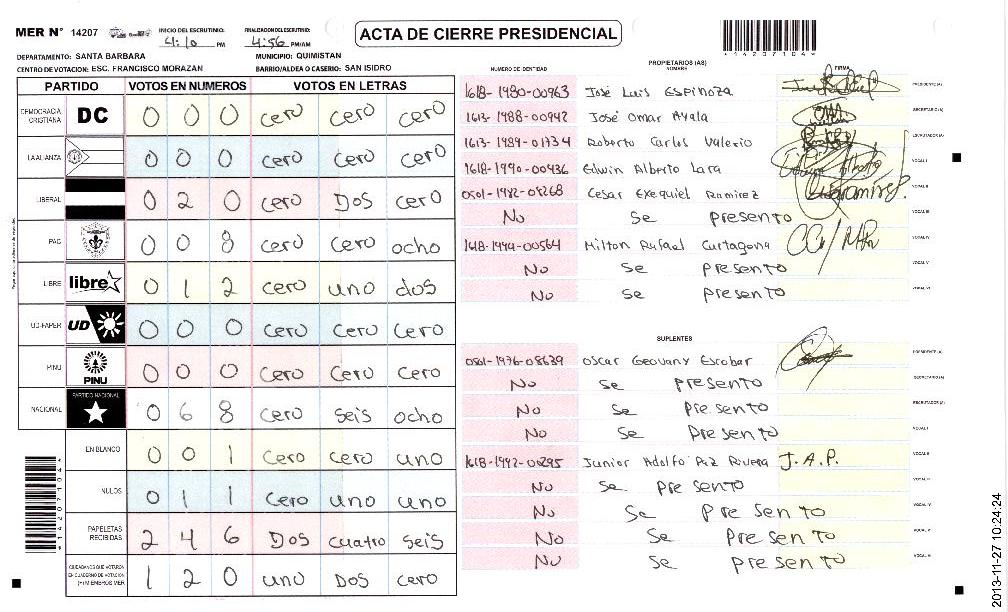 MER N° 14207
INICIO DEL ESCRUTINIO: 4:10 PM
FINALIZACION DEL ESCRUTINIO: 4:56 PM/AM
ACTA DE CIERRE PRESIDENCIAL
*14207104*
DEPARTAMENTO: SANTA BARBARA
MUNICIPIO: QUIMISTAN
CENTRO DE VOTACION: ESC. FRANCISCO MORAZAN
BARRIO/ALDEA O CASERIO: SAN ISIDRO
PARTIDO VOTOS EN NUMEROS VOTOS EN LETRAS
DEMOCRACIA CRISTIANA DC 0 0 0 cero cero cero
LA ALIANZA 0 0 0 cero cero cero
LIBERAL 0 2 0 cero Dos cero
PAC 0 0 8 cero cero ocho
LIBRE libre 0 1 2 cero uno dos
UD-FAPER UD 0 0 0 cero cero cero
PINU PINU 0 0 0 cero cero cero
NACIONAL PARTIDO NACIONAL 0 6 8 cero seis ocho
EN BLANCO 0 0 1 cero cero uno
NULOS 0 1 1 cero uno uno
PAPELETAS RECIBIDAS 2 4 6 Dos cuatro seis
CIUDADANOS QUE VOTARON EN CUADERNO DE VOTACION (+) MIEMBROS MER 1 2 0 uno Dos cero
*14207104*
PROPIETARIOS (AS)
NUMERO DE IDENTIDAD NOMBRES FIRMA
1618-1980-00963 José Luis Espinoza PRESIDENTE (A)
1613-1988-00942 José Omar Ayala SECRETARIO (A)
1613-1989-01734 Roberto Carlos Valerio ESCRUTADOR (A)
1618-1990-00436 Edwin Alberto Lara VOCAL I
0501-1982-08268 Cesar Exequiel Ramirez VOCAL II
No Se presento VOCAL III
1618-1994-00564 Milton Rafael Cartagena VOCAL IV
No Se presento VOCAL V
No Se presento VOCAL VI
SUPLENTES
0501-1976-08639 Oscar Geovany Escobar PRESIDENTE (A)
No Se presento SECRETARIO (A)
No Se presento ESCRUTADOR (A)
No Se presento VOCAL I
1618-1992-00295 Junior Adolfo Paz Rivera J.A.P. VOCAL II
No Se presento VOCAL III
No Se presento VOCAL IV
No Se presento VOCAL V
No Se presento VOCAL VI
2013-11-27 10:24:24